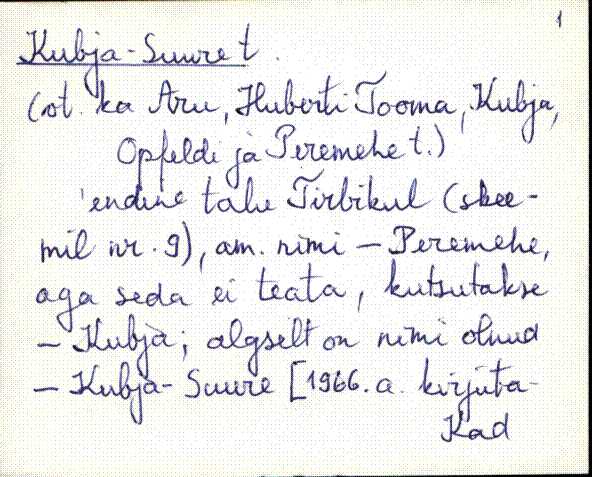 1
Kubja-Suure t.
(vt. ka Aru, Huberti Tooma, Kubja,
Opfeldi ja Peremehe t.)
endine talu Tirbikul (skee-
mil nr. 9), am. nimi – Peremehe,
aga seda ei teata, kutsutakse
– Kubja; algselt on nimi olnud
– Kubja-Suure [1966. a. kirjuta-
Kad